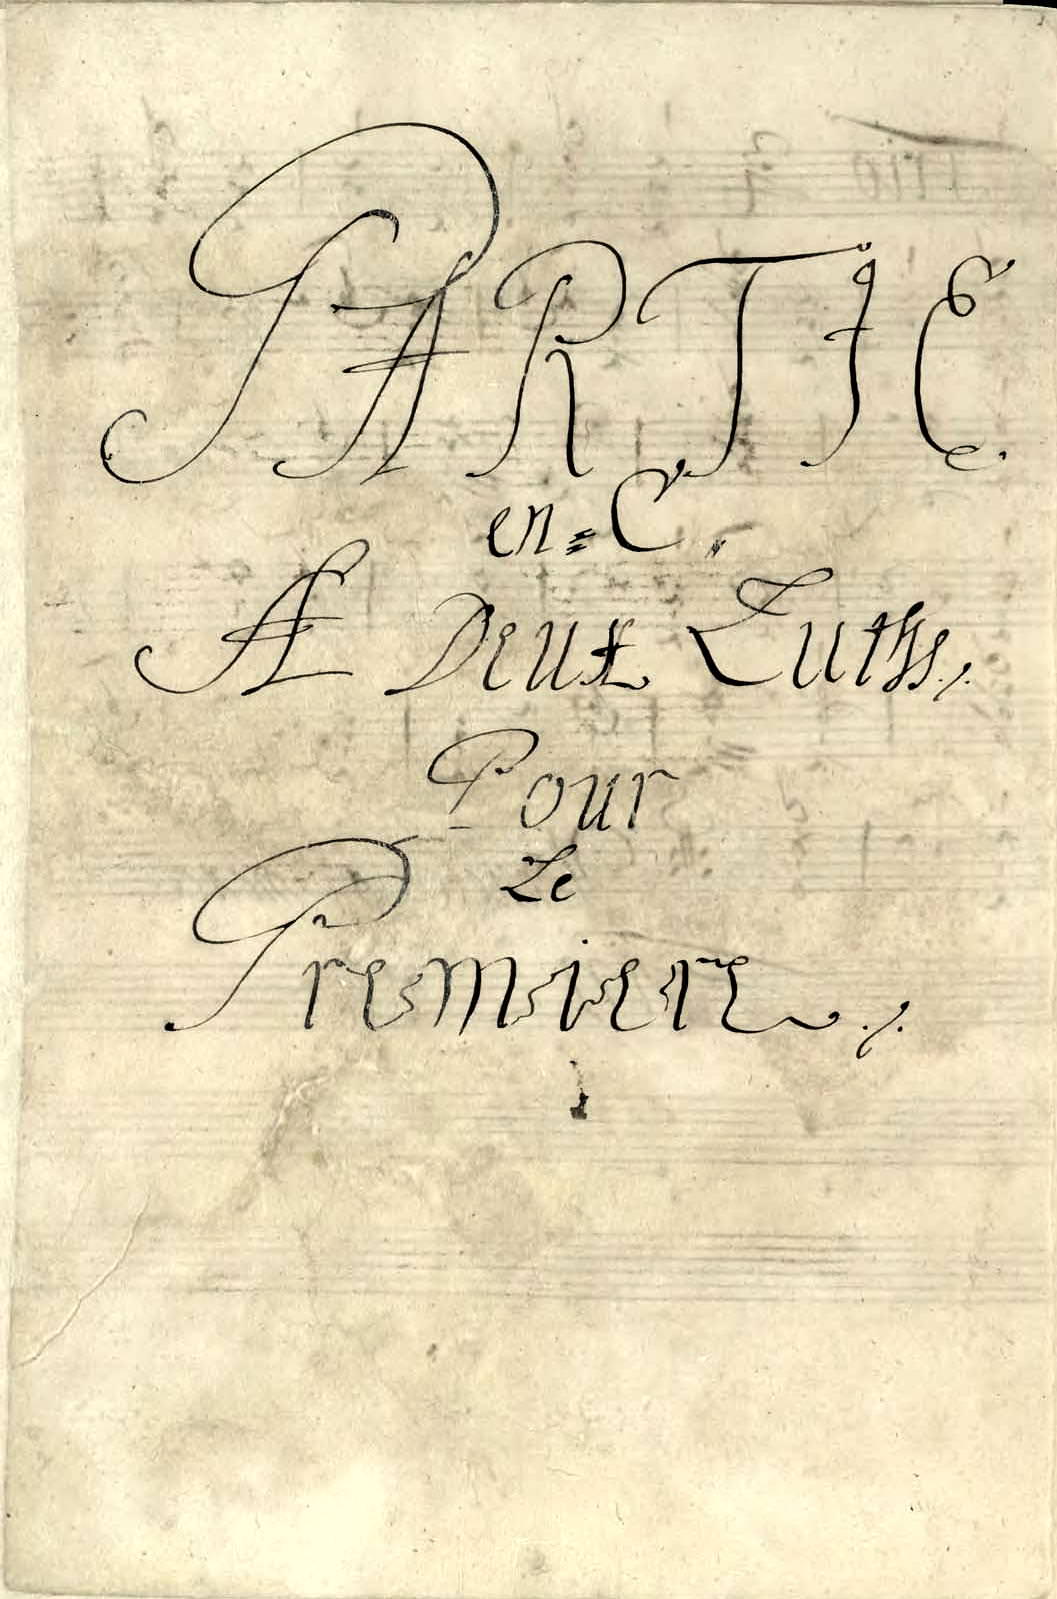 PARTIE
en = C.
A Deux Luths./.
Pour
Le
Premiere./.